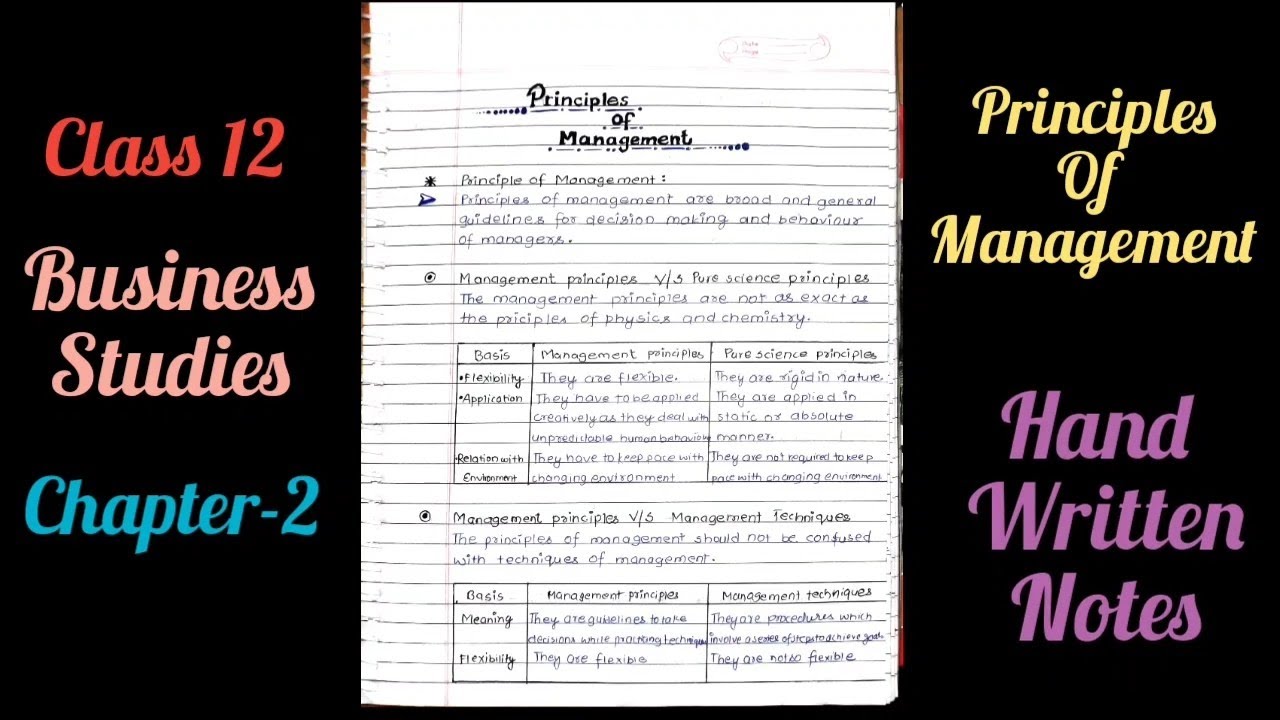 Class 12
Business
Studies
Chapter-2
Principles
of
Management
* Principle of Management:
➤ Principles of management are broad and general
guidelines for decision making and behaviour
of managers.
Management principles V/S Pure science principles
The management principles are not as exact as
the priciples of physics and chemistry.
Basis Management principles Pure science principles
•Flexibility They are flexible. They are rigid in nature.
•Application They have to be applied They are applied in
creatively as they deal with static or absolute
unpredictable human behaviour manner.
•Relation with They have to keep pace with They are not required to keep
Environment changing environment pace with changing environment
Management principles V/S Management Techniques
The principles of management should not be confused
with techniques of management.
Basis Management principles Management techniques
Meaning They are guidelines to take They are procedures which
decisions while practising techniques involve a series of steps to achieve goals
Flexibility They are flexible They are not so flexible
Principles
Of
Management
Hand
Written
Notes